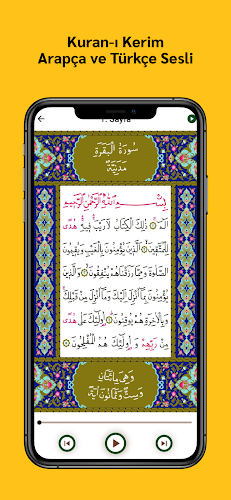 Kuran-ı Kerim
Arapça ve Türkçe Sesli
1. Sayfa
سُورَةُ الْبَقَرَةِ
مَدَنِيَّةٌ
بِسْمِ اللّٰهِ الرَّحْمٰنِ الرَّحِيمِ
الٓمٓ ۞ ذٰلِكَ الْكِتَابُ لَا رَيْبَ فِيهِ هُدًى
لِلْمُتَّقِينَ ۞ الَّذِينَ يُؤْمِنُونَ بِالْغَيْبِ وَيُقِيمُونَ
الصَّلٰوةَ وَمِمَّا رَزَقْنَاهُمْ يُنْفِقُونَ ۞ وَالَّذِينَ
يُؤْمِنُونَ بِمَٓا اُنْزِلَ اِلَيْكَ وَمَٓا اُنْزِلَ مِنْ قَبْلِكَ
وَبِالْاٰخِرَةِ هُمْ يُوقِنُونَ ۞ اُولٰٓئِكَ عَلٰى هُدًى
مِنْ رَبِّهِمْ وَاُولٰٓئِكَ هُمُ الْمُفْلِحُونَ ۞
وَهِيَ مِائَتَانِ
وَسِتٌّ وَثَمَانُونَ اٰيَةً